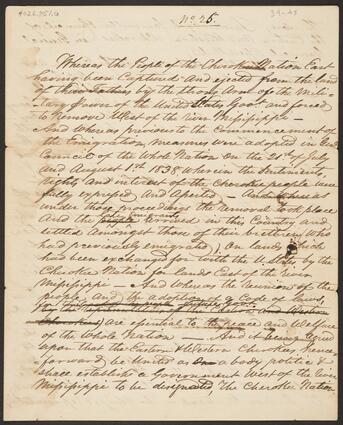 4026.451.a
No. 25.
Whereas the People of the Cherokee Nation East
having been Captured and ejected from the land
of their Fathers by the strong Arm of the Mili-
tary Power of the United States Govt and forced
to Remove West of the river Mississippi —
And whereas previous to the Commencement of
the Emigration, measures were adopted in
Council of the Whole Nation on the 21st of July
and August 1st 1838 wherein the Sentiments,
Rights and interest of the Cherokee people were
fully expressed and Asserted — And whereas
under those proceedings the removal took place
And the late emigrants arrived in this Country and
settled amongst those of their brethren (who
had previously emigrated), on lands which
had been exchanged for with the U. States by the
Cherokee Nation for lands East of the river
Mississippi — And whereas the reunion of the
people and the adoption of a Code of laws,
by the
Western
Cherokees) are essential to the peace and Welfare
of the whole Nation — And it being agreed
upon that the Eastern & Western Cherokees hence-
forward be United as a body politic &
shall establish a Government West of the river
Mississippi to be designated, The Cherokee Nation